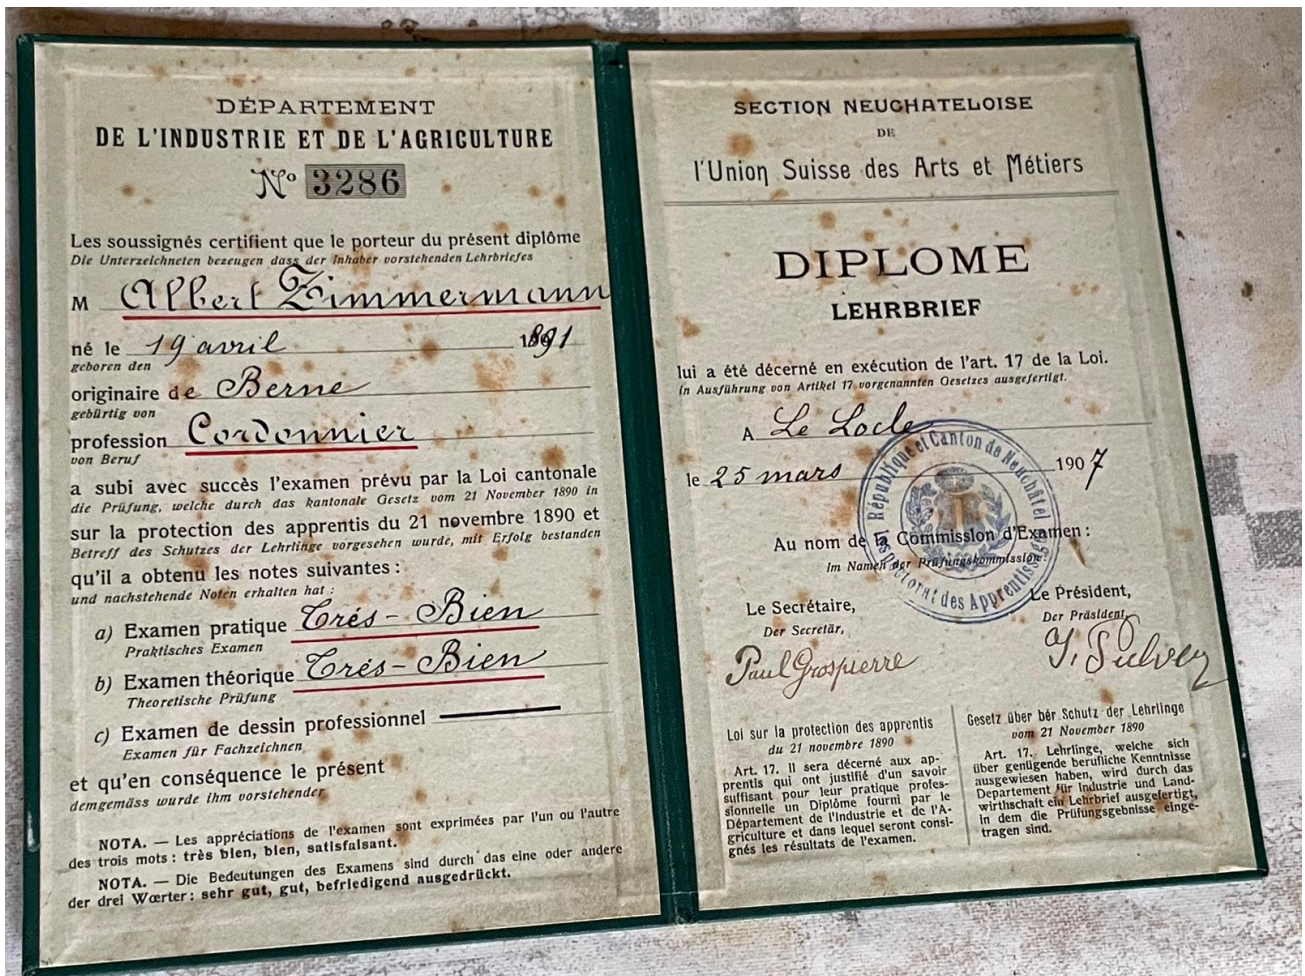 DÉPARTEMENT
DE L'INDUSTRIE ET DE L'AGRICULTURE
No 3286
Les soussignés certifient que le porteur du présent diplôme
Die Unterzeichneten bezeugen dass der Inhaber vorstehenden Lehrbriefes
M Albert Zimmermann
né le 19 avril 1891
geboren den
originaire de Berne
gebürtig von
profession Cordonnier
von Beruf
a subi avec succès l'examen prévu par la Loi cantonale
die Prüfung, welche durch das kantonale Gesetz vom 21 November 1890 in
sur la protection des apprentis du 21 novembre 1890 et
Betreff des Schutzes der Lehrlinge vorgesehen wurde, mit Erfolg bestanden
qu'il a obtenu les notes suivantes :
und nachstehende Noten erhalten hat :
a) Examen pratique Trés-Bien
Praktisches Examen
b) Examen théorique Trés-Bien
Theoretische Prüfung
c) Examen de dessin professionnel —
Examen für Fachzeichnen
et qu'en conséquence le présent
demgemäss wurde ihm vorstehender
NOTA. — Les appréciations de l'examen sont exprimées par l'un ou l'autre
des trois mots : très bien, bien, satisfaisant.
NOTA. — Die Bedeutungen des Examens sind durch das eine oder andere
der drei Wœrter : sehr gut, gut, befriedigend ausgedrückt.
SECTION NEUCHATELOISE
DE
l'Union Suisse des Arts et Métiers
DIPLOME
LEHRBRIEF
lui a été décerné en exécution de l'art. 17 de la Loi.
in Ausführung von Artikel 17 vorgenannten Gesetzes ausgefertigt.
A Le Locle
le 25 mars 1907
République et Canton de Neuchâtel
Inspectorat des Apprentissages
Au nom de la Commission d'Examen :
Im Namen der Prüfungskommission :
Le Secrétaire,
Der Secretär,
Paul Grospierre
Le Président,
Der Präsident,
Loi sur la protection des apprentis
du 21 novembre 1890
Art. 17. Il sera décerné aux ap-
prentis qui ont justifié d'un savoir
suffisant pour leur pratique profes-
sionnelle un Diplôme fourni par le
Département de l'Industrie et de l'A-
griculture et dans lequel seront consi-
gnés les résultats de l'examen.
Gesetz über bér Schutz der Lehrlinge
vom 21 November 1890
Art. 17. Lehrlinge, welche sich
über genügende berufliche Kenntnisse
ausgewiesen haben, wird durch das
Departement für Industrie und Land-
wirthschaft ein Lehrbrief ausgefertigt,
in dem die Prüfungsgebnisse einge-
tragen sind.